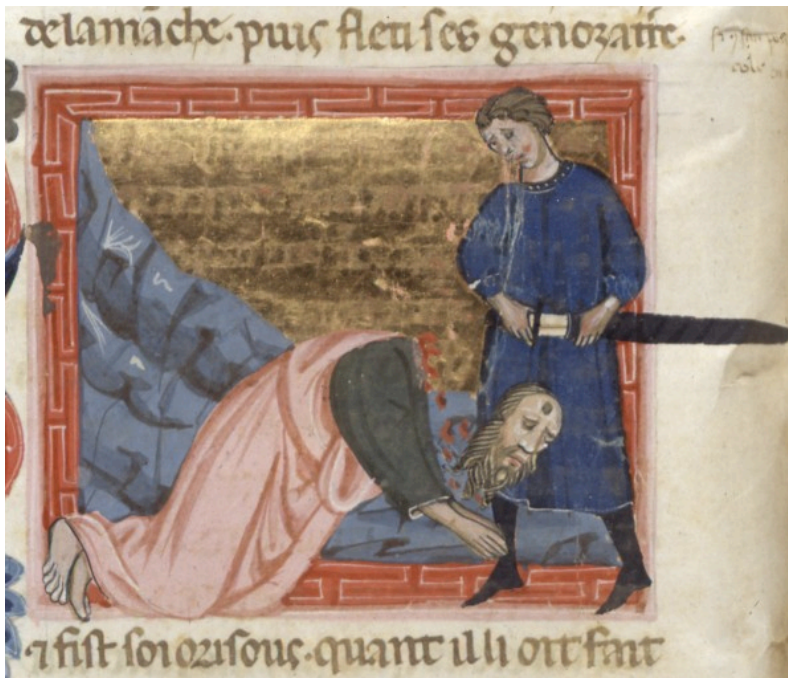 delamāche. puis fleti ses genoz a tīre.
⁊ fist soi orisons. quant il li oit fait